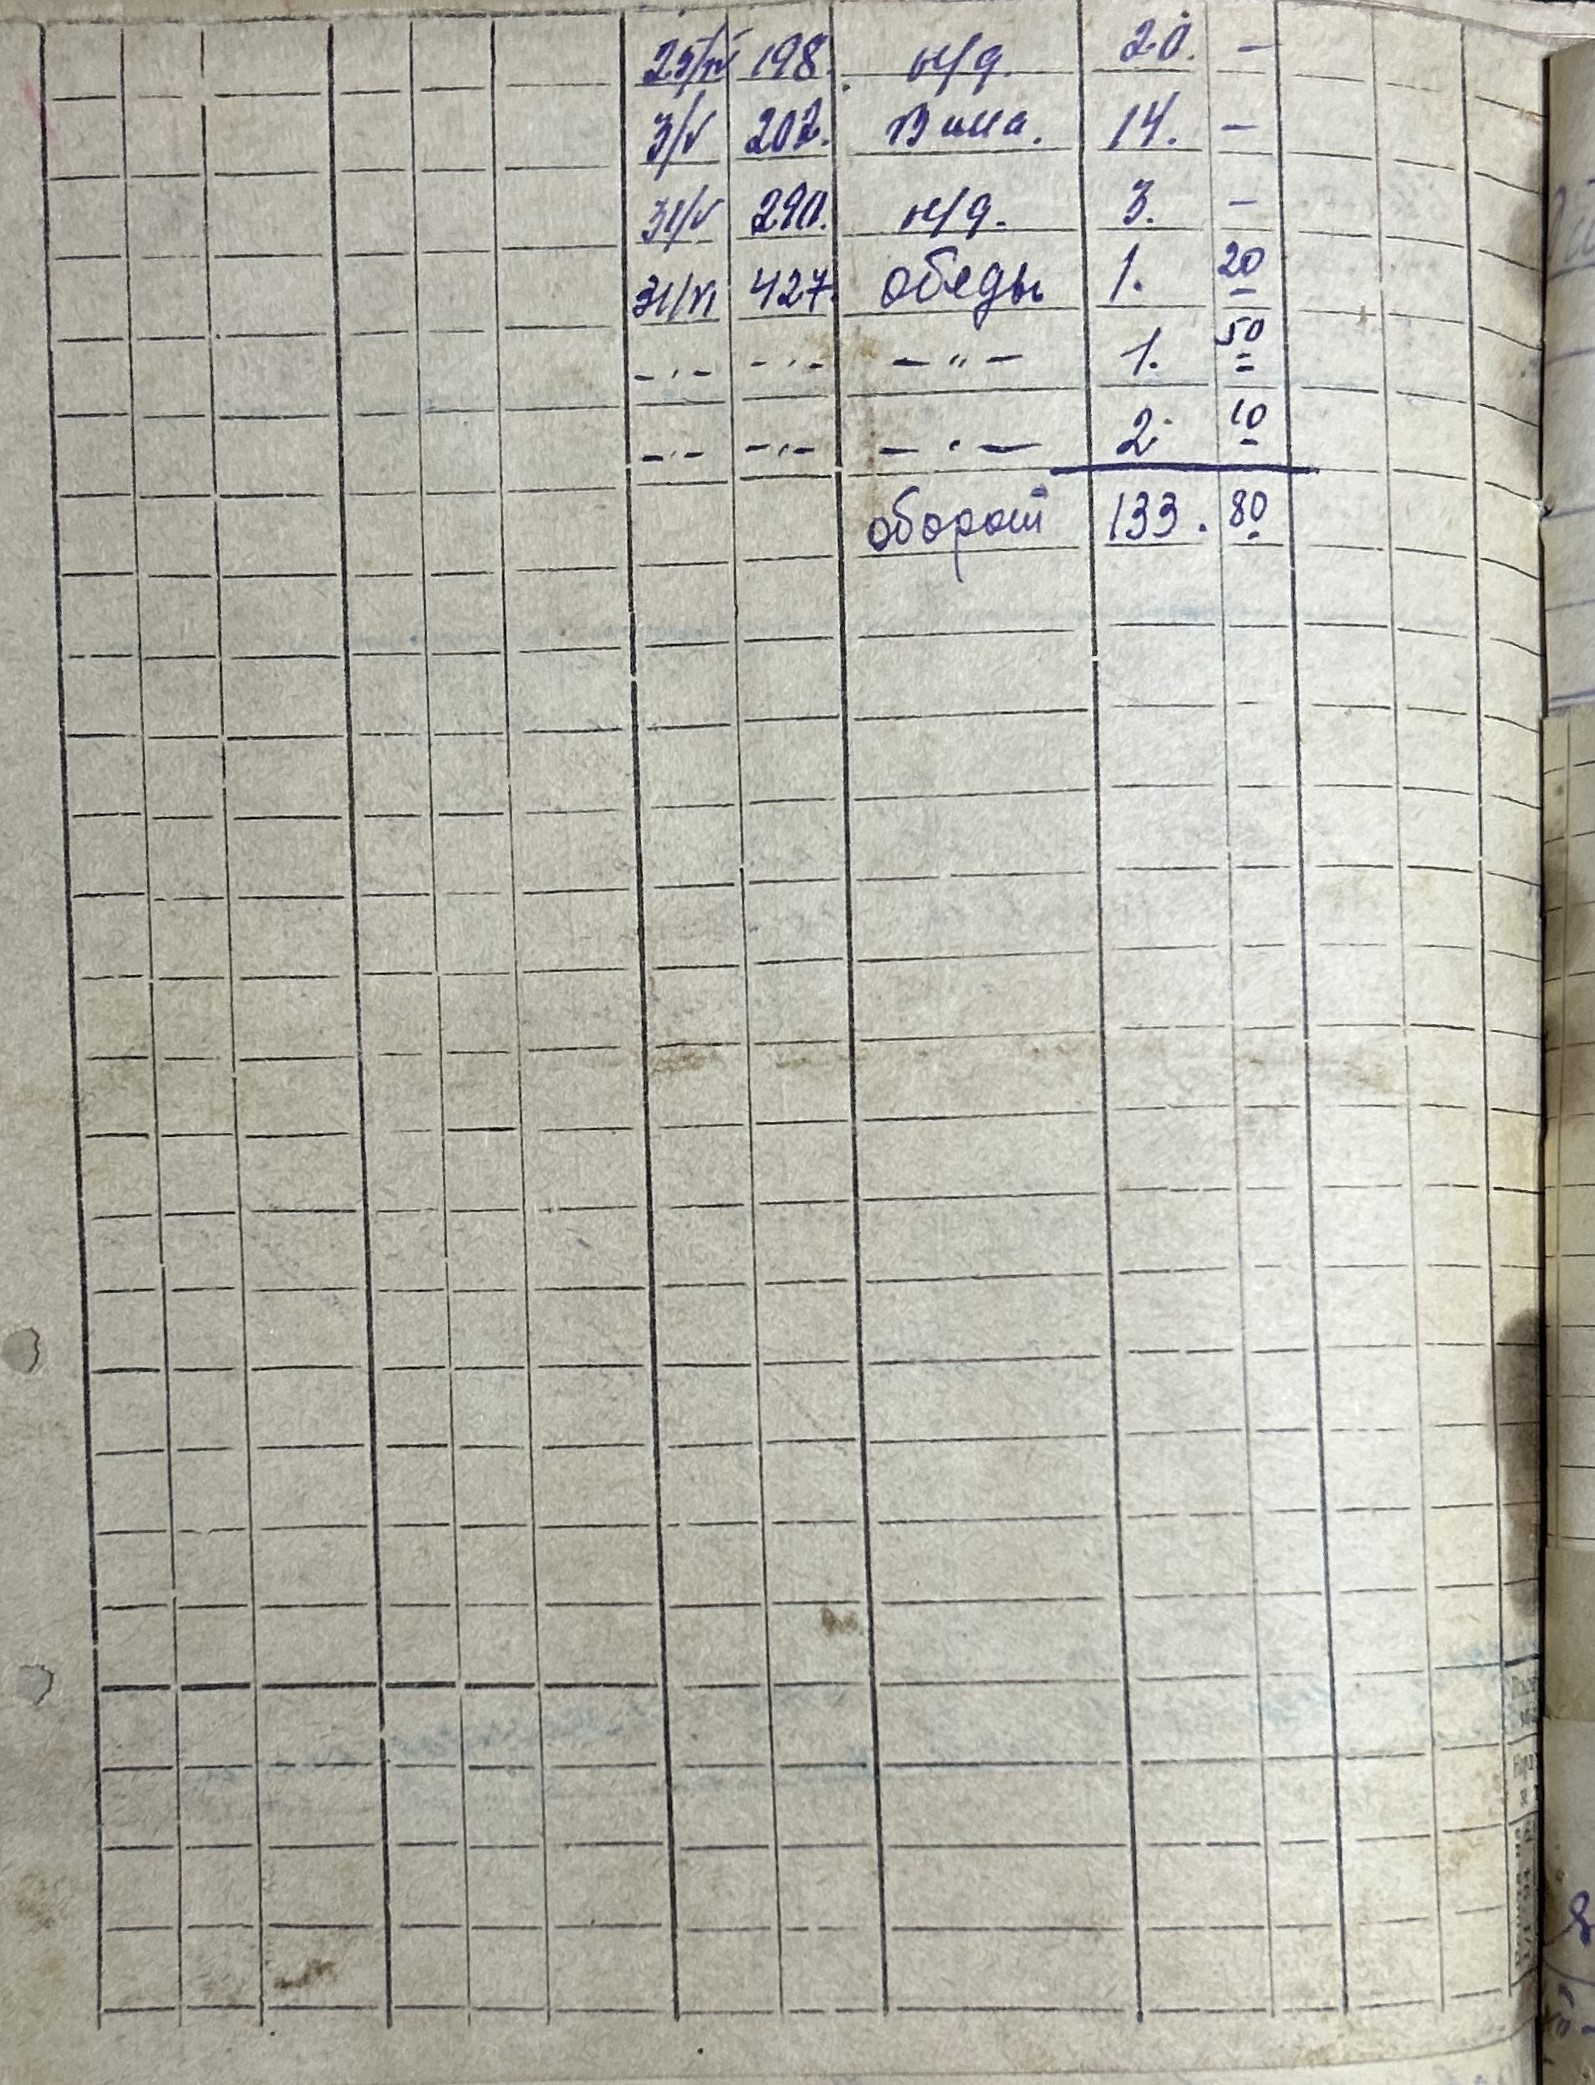 25/IV 198. н/д. 20. —
3/V 202. Вина. 14. —
31/V 290. н/д. 3. —
31/VI 427. обеды 1. 20
-·- -·- -"- 1. 50
-·- -·- -·- 2. 10
оборот 133. 80